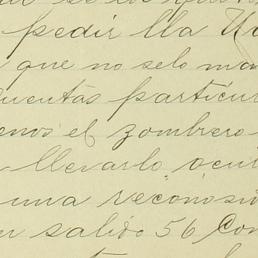 pedir lla
que no selo
cuentas particu
el zombrero
llevarlo, ocul
una reconosi
salido 56 Con